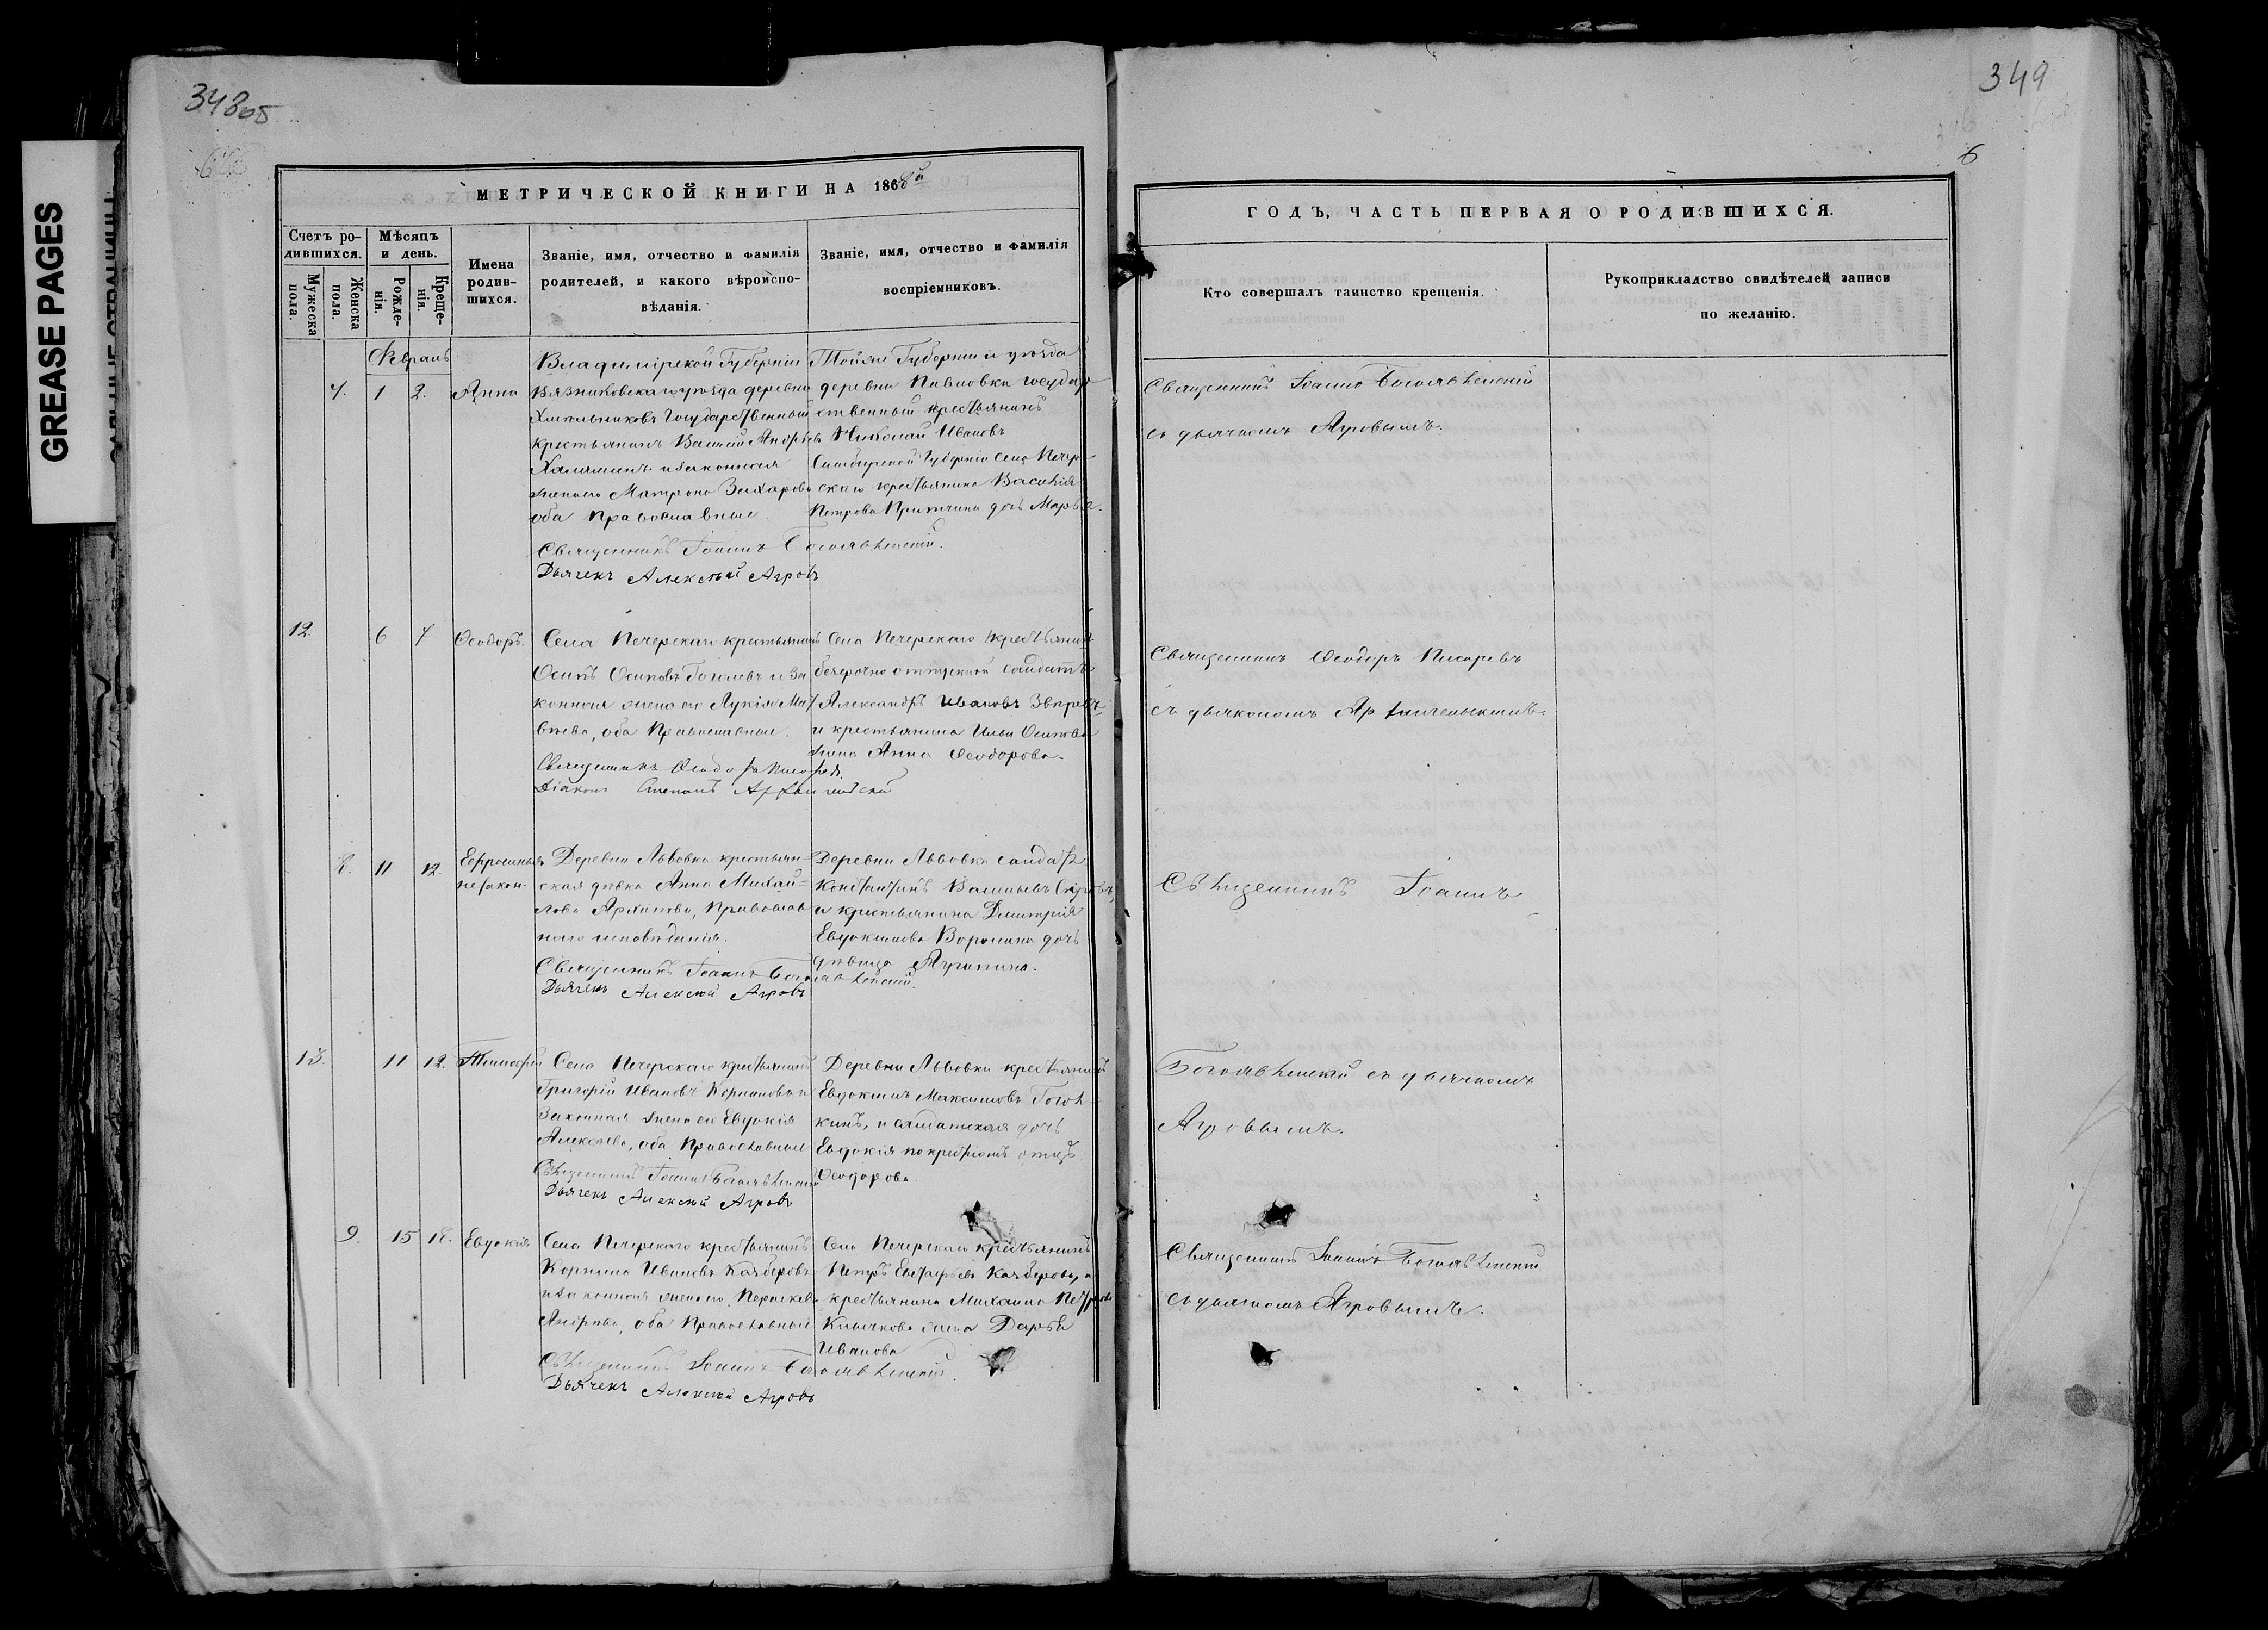 348об
349
6
GREASE PAGES
МЕТРИЧЕСКОЙ КНИГИ НА 1868й
Счетъ родившихся.
Мужеска пола.
Женска пола.
Мѣсяцъ и день.
Рожденія.
Крещенія.
Имена родившихся.
Званіе, имя, отчество и фамилія
родителей, и какого вѣроиспо-
вѣданія.
Званіе, имя, отчество и фамилія
воспріемниковъ.
Февраль
7. 1 2. Анна
Владимірской Губерніи
Вязниковскаго уѣзда деревни
Государственный
крестьянинъ Василій Андреевъ
и законная
жена его Матрона Захарова
оба Православные.
Тойже Губерніи и уѣзда
деревни Павловки государ-
ственный крестьянинъ
Николай Ивановъ
Симбирской Губерніи села Печер-
скаго крестьянина Василія
Петрова дочь Марѳа.
Священникъ Іоаннъ Богоявленскій.
Дьячекъ Алексѣй Агровъ
12. 6 7 Ѳеодоръ.
Села Печерскаго крестьянинъ
Осипъ Осиповъ и за-
конная жена его Лукія Мат-
вѣева, оба Православные.
Села Печерскаго крестьянинъ
безсрочно отпускной солдатъ
Александръ Ивановъ Звѣревъ,
и крестьянина Ильи Осипова
жена Анна Ѳеодорова.
Священникъ Ѳеодоръ Писаревъ.
Діаконъ Степанъ
8. 11 12. Евфросинья
незакон.
Деревни Львовки крестьян-
ская дѣвка Анна Михай-
лова Архипова, Православ-
наго исповѣданія.
Деревни Львовки солдатъ
Константинъ Васильевъ
и крестьянина Дмитрія
Евдокимова Воронина дочь
дѣвица Агрипина.
Священникъ Іоаннъ Богоявленскій.
Дьячекъ Алексѣй Агровъ
13. 11 12. Тимофей
Села Печерскаго крестьянинъ
Григорій Ивановъ и
законная жена его Евдокія
Алексѣева, оба Православные
Деревни Львовки крестьянинъ
Евдокимъ Максимовъ
и солдатская дочь
Евдокія по крестномъ отцѣ
Ѳеодорова.
Священникъ Іоаннъ Богоявленскій
Дьячекъ Алексѣй Агровъ
9. 15 18. Евдокія
Села Печерскаго крестьянинъ
Корнила Ивановъ Казберовъ
и законная жена его Параскева
Андреева, оба Православные
Села Печерскаго крестьянинъ
Петръ Евстафьевъ Казберовъ, и
крестьянина Михаила Петрова
Клычкова жена Дарья
Иванова
Священникъ Іоаннъ Богоявленскій.
Дьячекъ Алексѣй Агровъ
ГОДЪ, ЧАСТЬ ПЕРВАЯ О РОДИВШИХСЯ.
Кто совершалъ таинство крещенія.
Рукоприкладство свидѣтелей записи
по желанію.
Священникъ Іоаннъ Богоявленскій
съ дьячкомъ Агровымъ.
Священникъ Ѳеодоръ Писаревъ
съ дьякономъ
Священникъ Іоаннъ
Богоявленскій съ дьячкомъ
Агровымъ.
Священникъ Іоаннъ Богоявленскій
съ дьячкомъ Агровымъ.